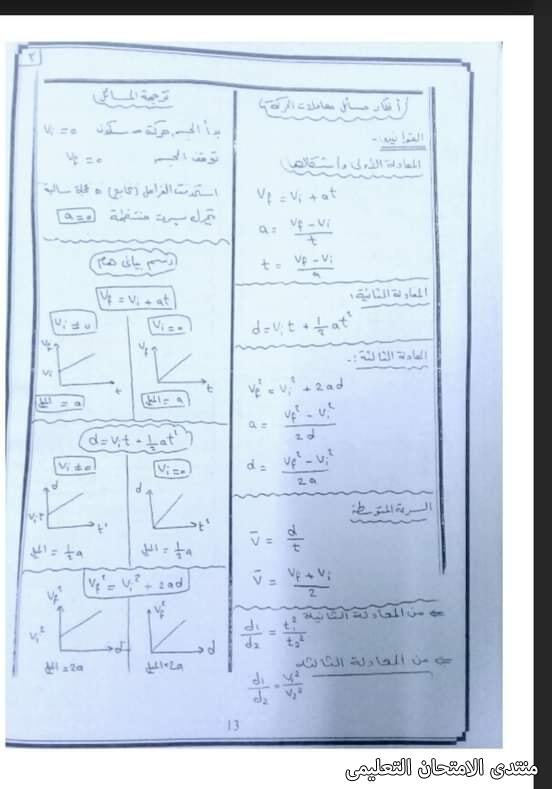 ٢
أفكار مسائل معادلات الحركة
القوانين:-
المعادلة الأولى واستنتاجاتها
Vf = Vi + at
a = Vf - Vi / t
t = Vf - Vi / a
المعادلة الثانية:
d = Vi t + 1/2 at²
المعادلة الثالثة:-
Vf² = Vi² + 2ad
a = Vf² - Vi² / 2d
d = Vf² - Vi² / 2a
السرعة المتوسطة
V̄ = d / t
V̄ = Vf + Vi / 2
من المعادلة الثانية
d1 / d2 = t1² / t2²
من المعادلة الثالثة
d1 / d2 = V1² / V2²
ترجمة المسائل
بدأ الجسم حركته من سكون Vi = 0
توقف الجسم Vf = 0
استخدمت الفرامل عجلة سالبة
يتحرك بسرعة منتظمة a = 0
رسم بياني هام
Vf = Vi + at
Vi ≠ 0
Vf
Vi
t
الميل = a
Vi = 0
Vf
t
الميل = a
d = Vi t + 1/2 at²
Vi ≠ 0
d
Vi t
t²
الميل = 1/2 a
Vi = 0
d
t²
الميل = 1/2 a
Vf² = Vi² + 2ad
Vf²
Vi²
d
الميل = 2a
Vf²
d
الميل = 2a
13
منتدى الامتحان التعليمى